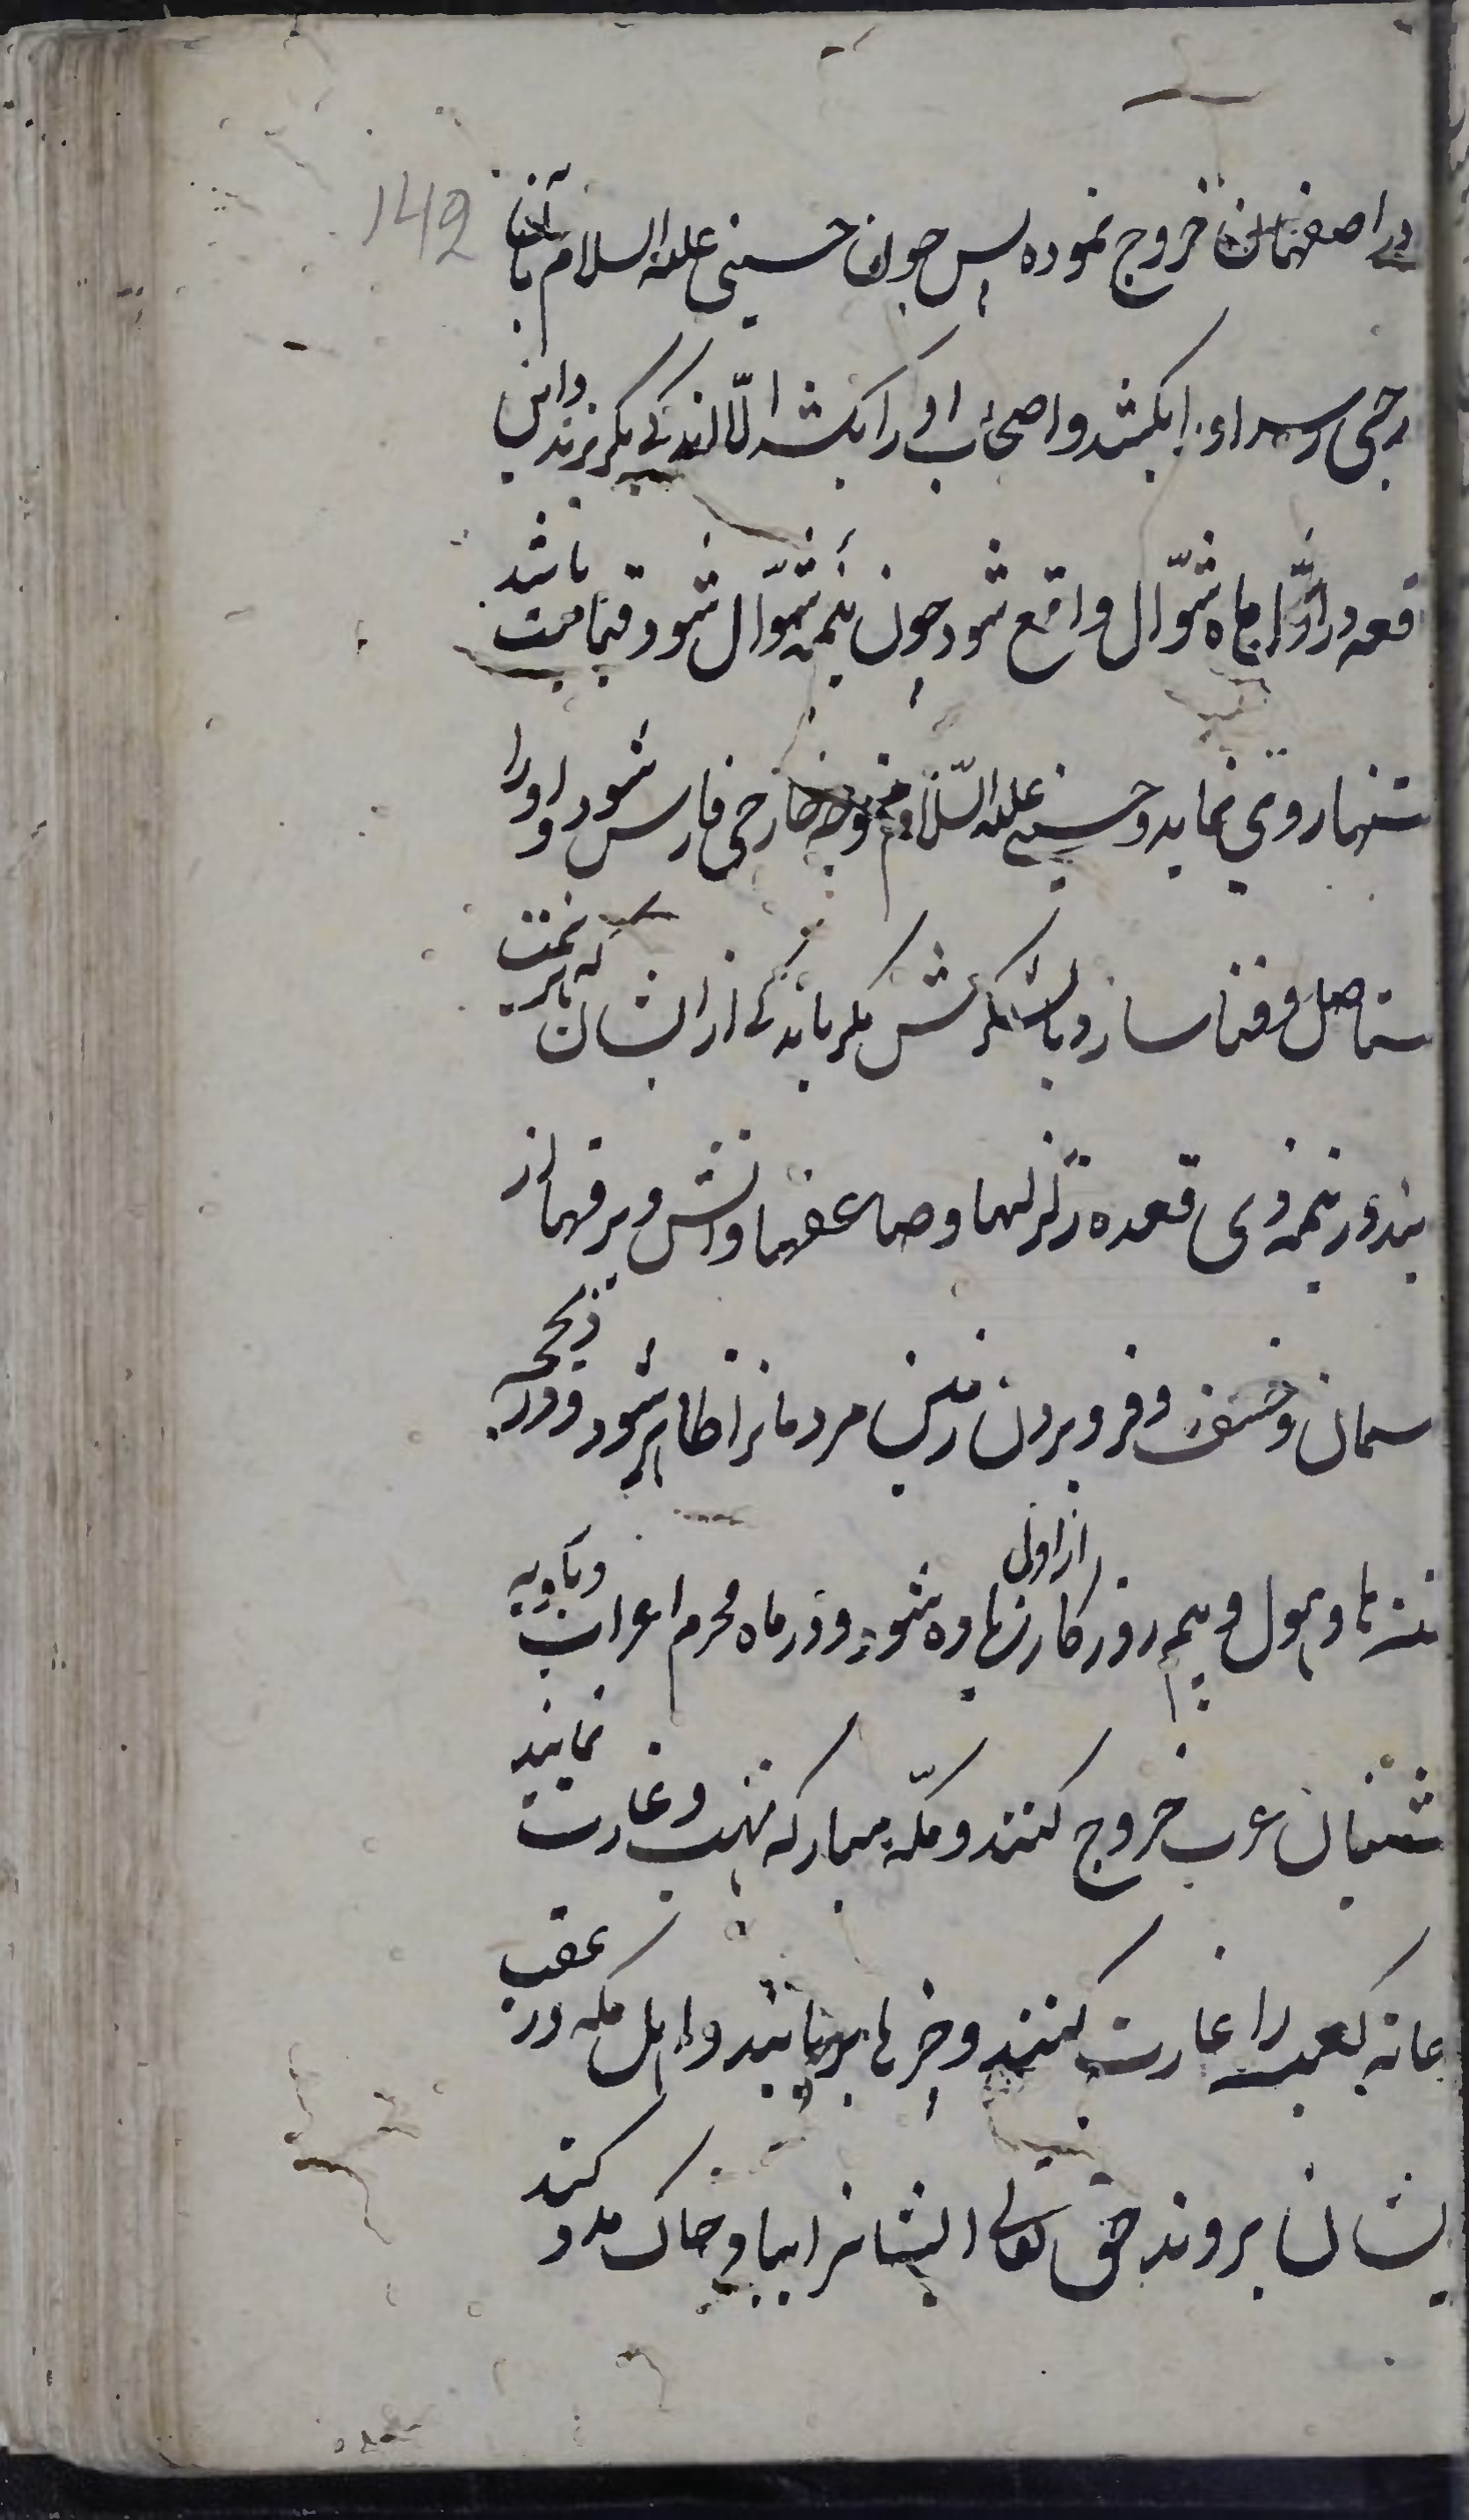 149
در اصفهان خروج نموده پس چون حسینی علیه السلام با آن
رجی رسد او را بکشد و اصحاب او را بکشد الا اندکی بگریزند و این
قعه در اول ماه شوّال واقع شود چون نیمه شوّال شود قیامت باشد
تنها روی نماید و حسینی علیه السّلام متوجه خارجی فارس شود و او را
ستاصل و فنا سازد با لشکرش مگر اندکی از ایشان که بگریخت
بند در نیمه ذی قعده زلزلها و صاعقها و آتش و برقها از
سمان و خسف و فرو بردن زمین مردمانرا ظاهر شود و در ذیحجه
تنه ها و هول و بیم روزگار زیاده شود از اول و در ماه محرم اعراب و بادیه
شینان عرب خروج کنند و مکّه مبارکه نهب و غارت نمایند
خانه کعبه را غارت کنند و خیرها بربایند و اهل مکه در عقب
یشان بروند حق تعالی ایشانرا بباد و خاک مدد کند